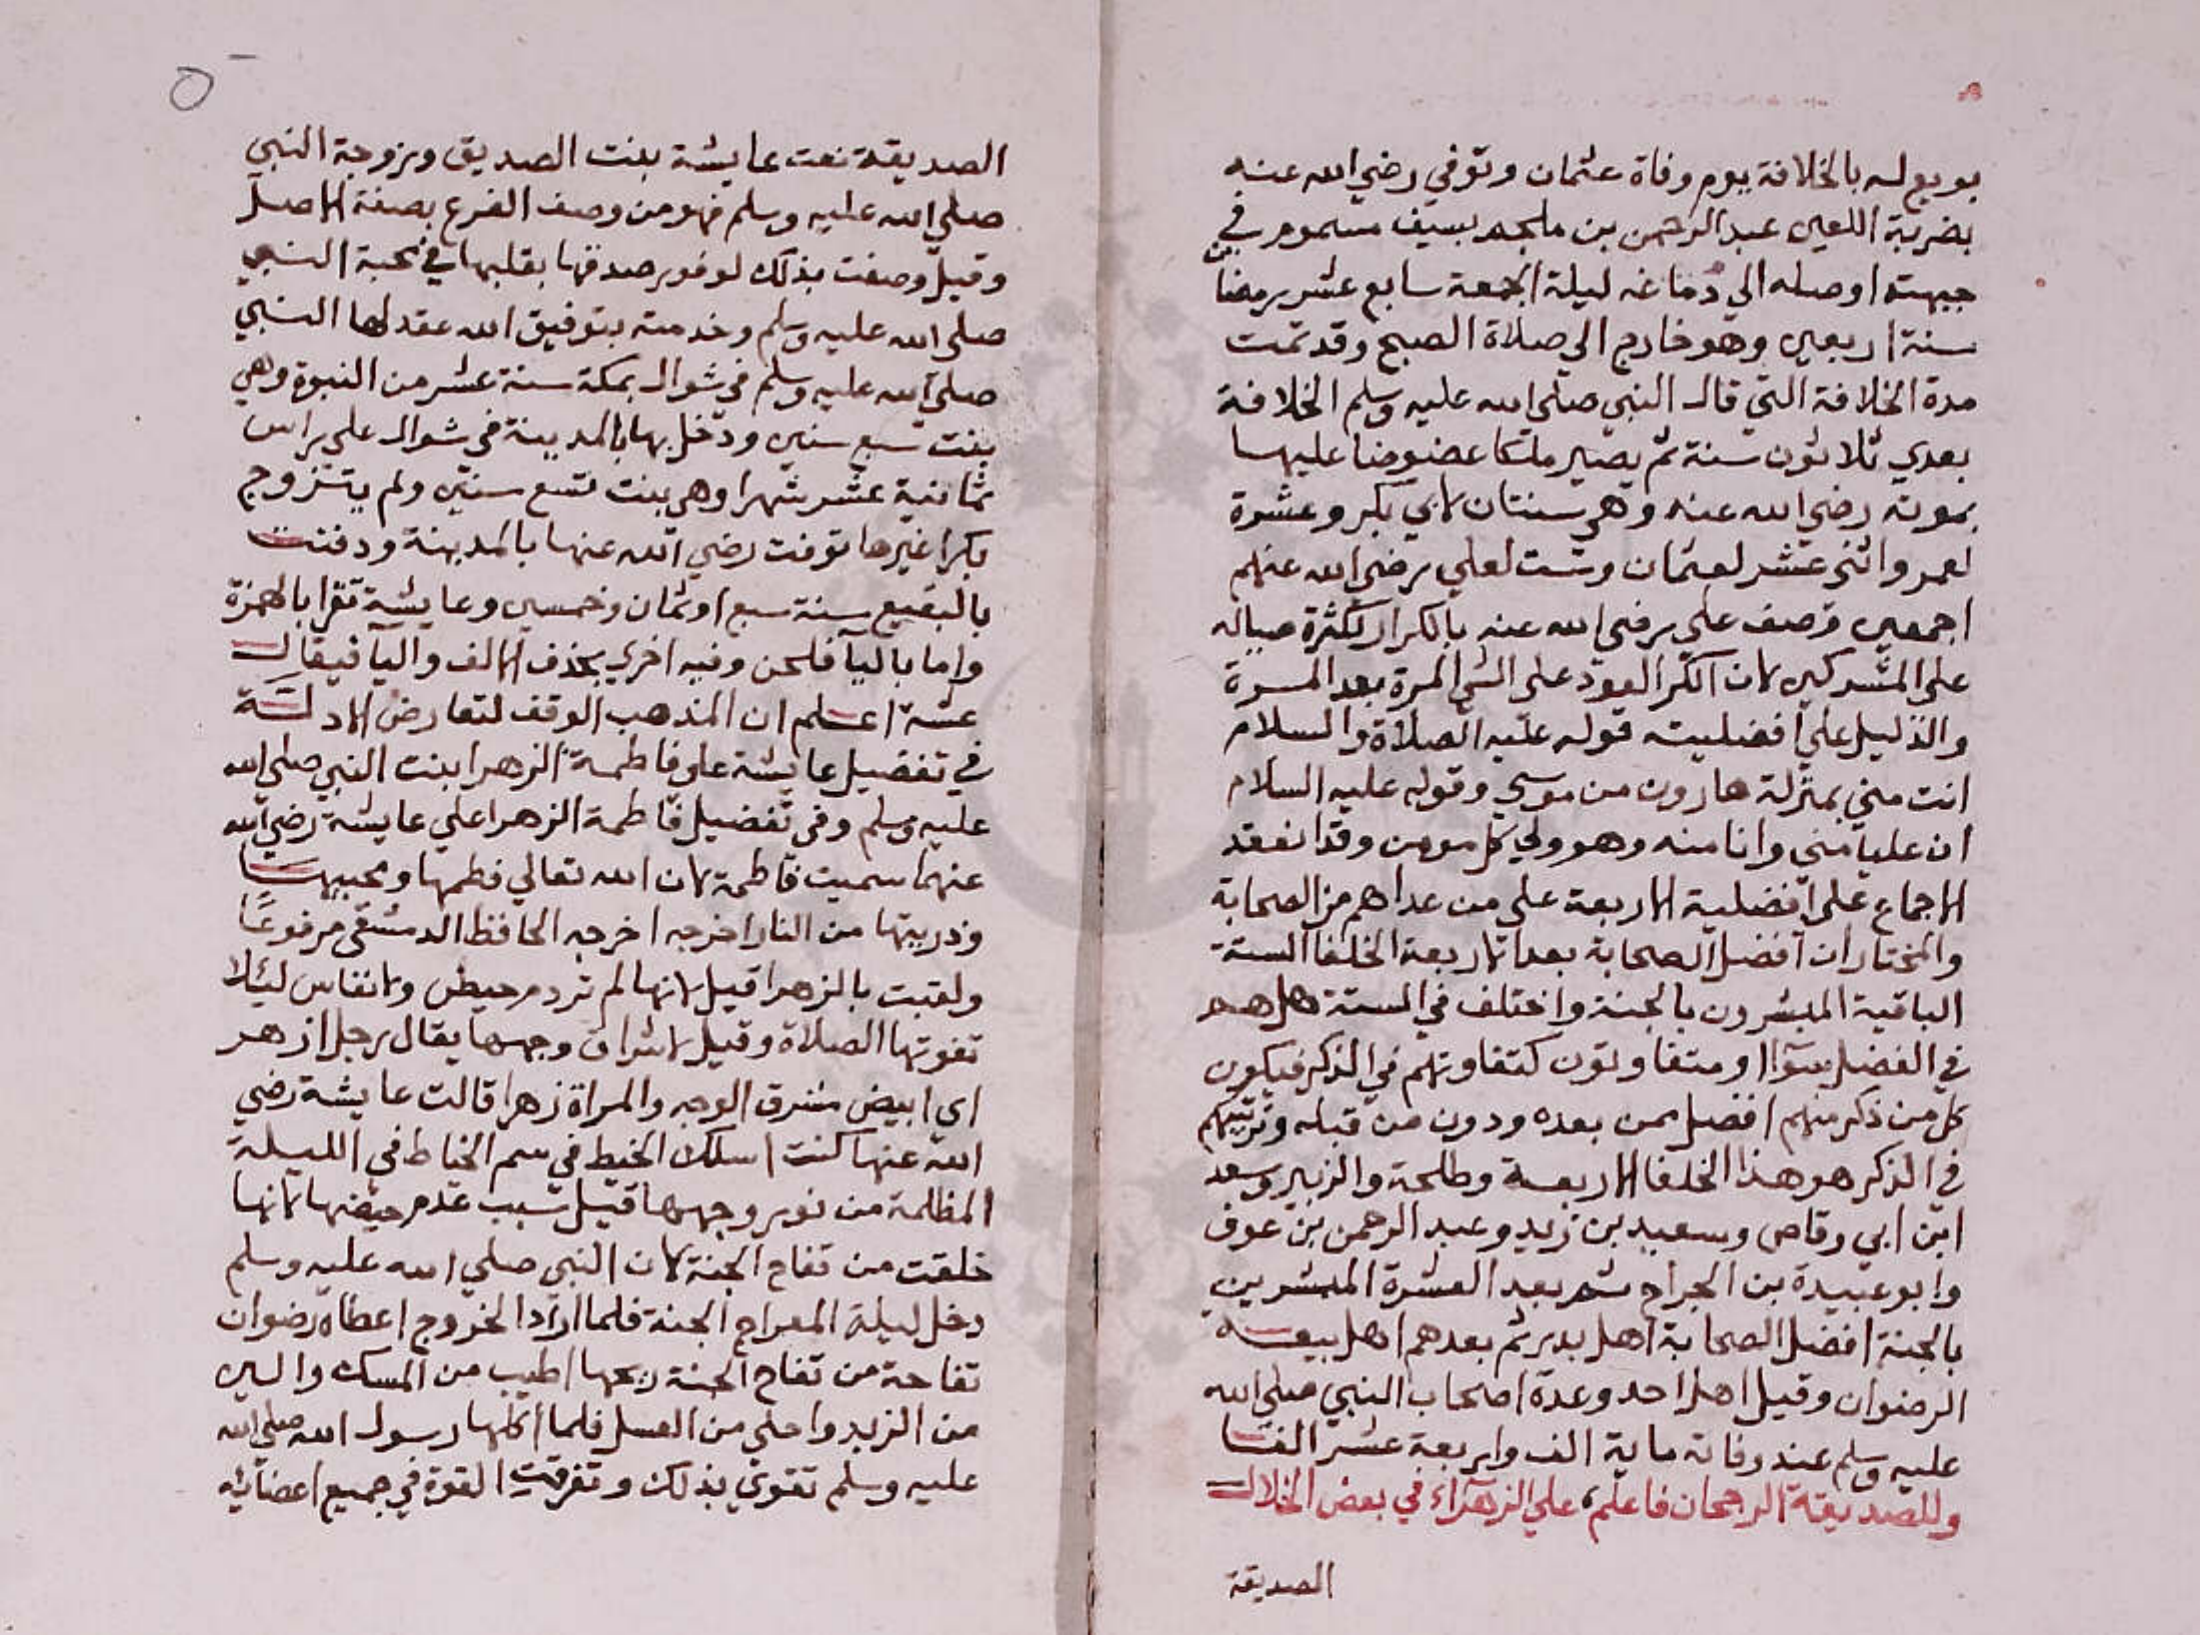 بويع له بالخلافة يوم وفاة عثمان وتوفي رضي الله عنه
بضربة اللعين عبد الرحمن بن ملجم بسيف مسموم في
جبهته اوصله الي دماغه ليلة الجمعة سابع عشر رمضا
سنة اربعين وهو خارج الي صلاة الصبح وقد تمت
مدة الخلافة التي قال النبي صلي الله عليه وسلم الخلافة
بعدي ثلاثون سنة ثم يصير ملكا عضوضا عليها
بموته رضي الله عنه وهي سنتان لابي بكر وعشرة
لعمر واثني عشر لعثمان وست لعلي رضي الله عنهم
اجمعين وصف علي رضي الله عنه بالكرار لكثرة
علي المشركين لان الكر العود علي الشي المرة بعد المرة
والدليل علي افضليته قوله عليه الصلاة والسلام
انت مني بمنزلة هارون من موسي وقوله عليه السلام
ان عليا مني وانا منه وهو ولي كل مومن وقد انعقد
الاجماع علي افضلية الاربعة علي من عداهم من الصحابة
والمختار ان افضل الصحابة بعد الاربعة الخلفا الستة
الباقية المبشرون بالجنة واختلف في الستة هل هم
في الفضل سوآا ومتفاوتون كتفاوتهم في الذكر فيكون
كل من ذكر منهم افضل ممن بعده ودون من قبله وترتيبهم
في الذكر هو هذا الخلفا الاربعة وطلحة والزبير وسعد
ابن ابي وقاص وسعيد بن زيد وعبد الرحمن بن عوف
وابو عبيدة بن الجراح ثم بعد العشرة المبشرين
بالجنة افضل الصحابة اهل بدر ثم بعدهم اهل بيعة
الرضوان وقيل اهل احد وعدة اصحاب النبي صلي الله
عليه وسلم عند وفاته ماية الف واربعة عشر الفا
وللصديقة الرجحان فاعلم، علي الزهرآء في بعض الخلال
الصديقة
٥
الصديقة نعت عايشة بنت الصديق وزوجة النبي
صلي الله عليه وسلم فهو من وصف الفرع بصفة الاصل
وقيل وصفت بذلك لوفور صدقها بقلبها في محبة النبي
صلي الله عليه وسلم وخدمته بتوفيق الله عقد لها النبي
صلي الله عليه وسلم في شوال بمكة سنة عشر من النبوة وهي
بنت سبع سنين ودخل بها بالمدينة في شوال علي راس
ثمانية عشر شهرا وهي بنت تسع سنين ولم يتزوج
بكرا غيرها توفت رضي الله عنها بالمدينة ودفنت
بالبقيع سنة سبع او ثمان وخمسين وعايشة تقرا بالهمزة
واما باليآ فلحن وفيه اخري بحذف الالف واليآ فيقال
عشة اعلم ان المذهب الوقف لتعارض الادلة
في تفضيل عايشة علي فاطمة الزهرا بنت النبي صلي الله
عليه وسلم وفي تفضيل فاطمة الزهرا علي عايشة رضي الله
عنهما سميت فاطمة لان الله تعالي فطمها ومحبيها
وذريتها من النار اخرجه اخرجه الحافظ الدمشقي مرفوعًا
ولقبت بالزهرا قيل لانها لم تر دم حيض ولا نفاس ليئلا
تفوتها الصلاة وقيل لاشراق وجهها يقال رجل ازهر
اي ابيض مشرق الوجه والمراة زهرا قالت عايشة رضي
الله عنها كنت اسلك الخيط في سم الخياط في الليلة
المظلمة من نور وجهها قيل سبب عدم حيضها لانها
خلقت من تفاح الجنة لان النبي صلي الله عليه وسلم
دخل ليلة المعراج الجنة فلما اراد الخروج اعطاه رضوان
تفاحة من تفاح الجنة ريحها اطيب من المسك والين
من الزبد واحلي من العسل فلما اكلها رسول الله صلي الله
عليه وسلم تقوي بذلك وتفرقت القوة في جميع اعضايه